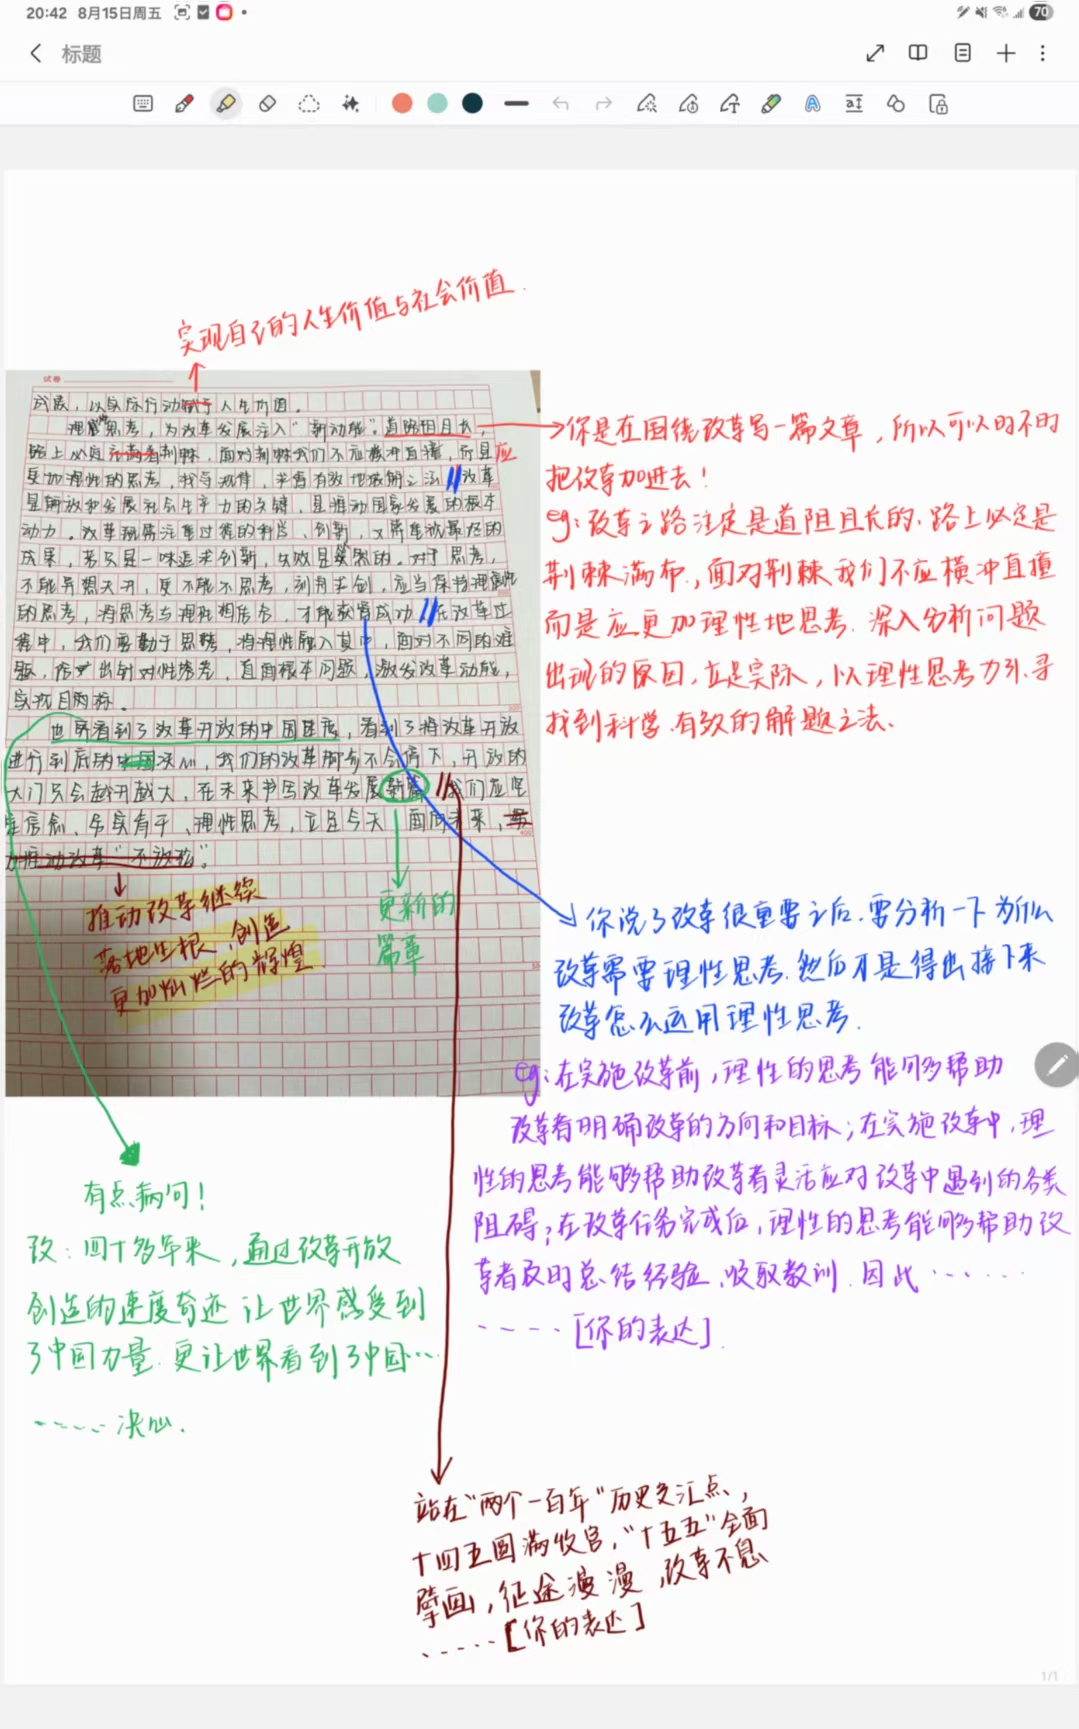 20:42 8月15日周五
70
标题
实现自己的人生价值与社会价值.
试卷
成最，以实际行动赋予人生价值。
理性思考，为改革发展注入“新动能”。道阻且长，
路上必定布满着荆棘，面对荆棘我们不应横冲直撞，而是应
更加理性的思考，找寻规律，求有有效地破解之法。改革
是解放和发展社会生产力的关键，是推动国家发展的根本
动力。改革既需注重过程的科学、创新，又需重视最后的
成果，若只是一味追求创新，失败是必然的。对于思考，
不能异想天开，更不能不思考，刻舟求剑，应当保持理性
的思考，将思考与理性相结合，才能获得成功。在改革过
程中，我们要勤于思考，将理性融入其中，面对不同的难
题，作出针对性思考，直面根本问题，激发改革动能，
实现目标。
世界看到了改革开放的中国速度，看到了将改革开放
进行到底的中国决心，我们的改革脚步不会停下，开放的
大门只会越开越大，在未来书写改革发展新篇。我们应坚
定信念、务实有干、理性思考，立足今天，面向未来，努
力推动改革“不放松”。
推动改革继续
落地生根，创造
更加灿烂的辉煌.
更新的
篇章
你是在围绕改革写一篇文章，所以可以时不时
把改革加进去！
eg：改革之路注定是道阻且长的，路上必定是
荆棘满布，面对荆棘我们不应横冲直撞
而是应更加理性地思考. 深入分析问题
出现的原因，立足实际，以理性思考为引，寻
找到科学、有效的解题之法.
你说了改革很重要之后，要分析一下为什么
改革需要理性思考，然后才是得出接下来
改革怎么运用理性思考.
eg：在实施改革前，理性的思考能够帮助
改革者明确改革的方向和目标；在实施改革中，理
性的思考能够帮助改革者灵活应对改革中遇到的各类
阻碍；在改革任务完成后，理性的思考能够帮助改
革者及时总结经验、吸取教训. 因此······
·····[你的表达].
有点病句！
改：四十多年来，通过改革开放
创造的速度奇迹让世界感受到
了中国力量，更让世界看到了中国··
·····决心.
站在“两个一百年”历史交汇点，
十四五圆满收官，“十五五”全面
擘画，征途漫漫，改革不息
·····[你的表达]
1/1